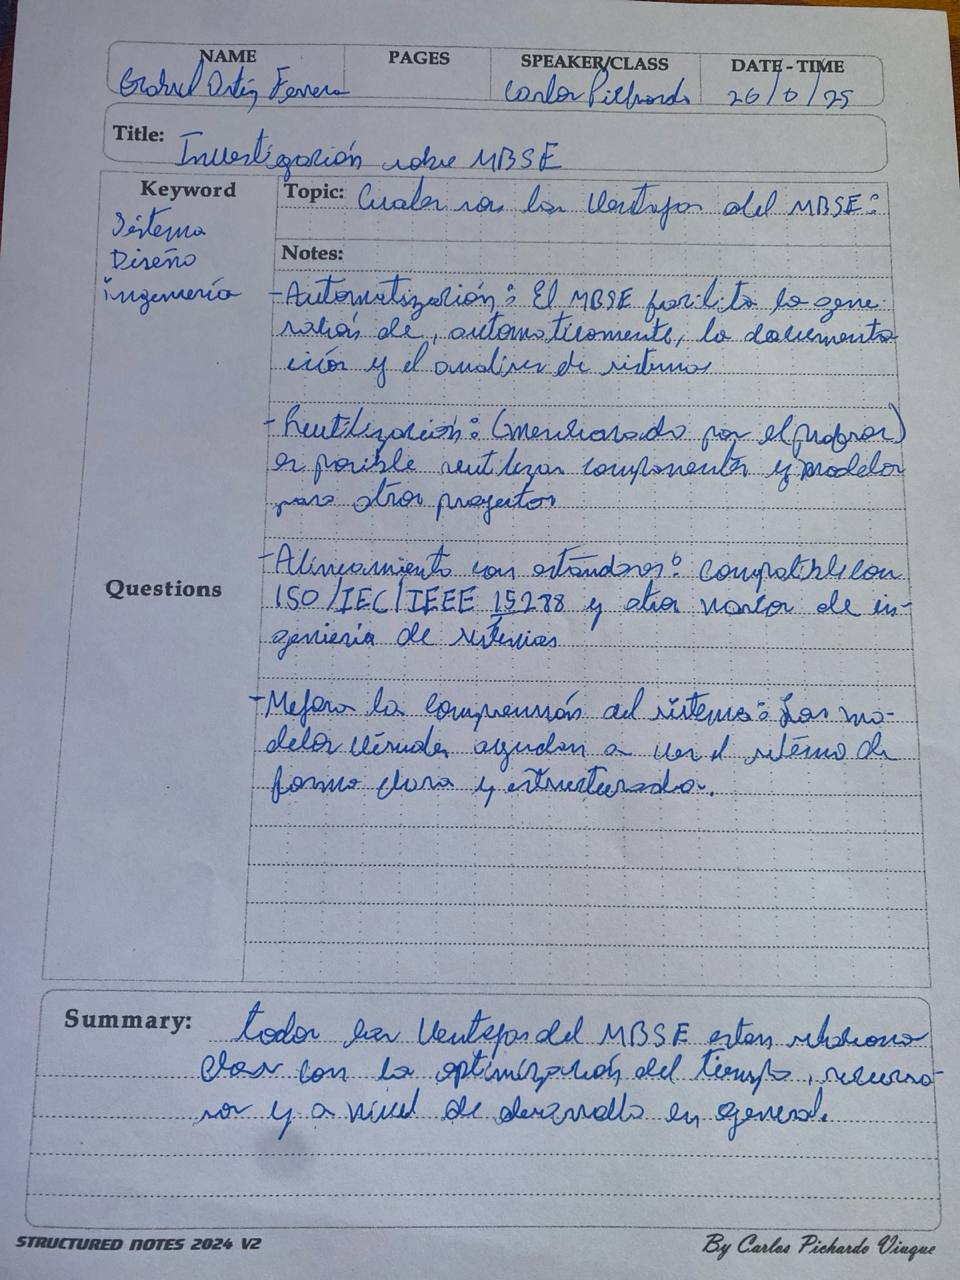 NAME PAGES SPEAKER/CLASS DATE - TIME
Ortiz Ferrera Carlos Pichardo 26/6/25
Title: Investigación sobre MBSE
Keyword
Sistema
Diseño
ingeniería
Topic: Cuales son las Ventajas del MBSE:
Notes:
-Automatización: El MBSE facilita la gene-
ración de, automaticamente, la documenta
ción y el analisis de sistemas
- Reutilización: (mencionado por el profesor)
es posible reutilizar componentes y modelos
para otros proyectos
-Alineamiento con estándares: compatible con
ISO/IEC/IEEE 15288 y otras normas de in-
geniería de sistemas
Questions
-Mejora la comprensión del sistema: Los mo-
delos visuales ayudan a ver el sistema de
forma clara y estructurada.
Summary: todas las Ventajas del MBSE estan relaciona
das con la optimización del tiempo, recurso-
sos y a nivel de desarrollo en general.
STRUCTURED NOTES 2024 V2
By Carlos Pichardo Viuque